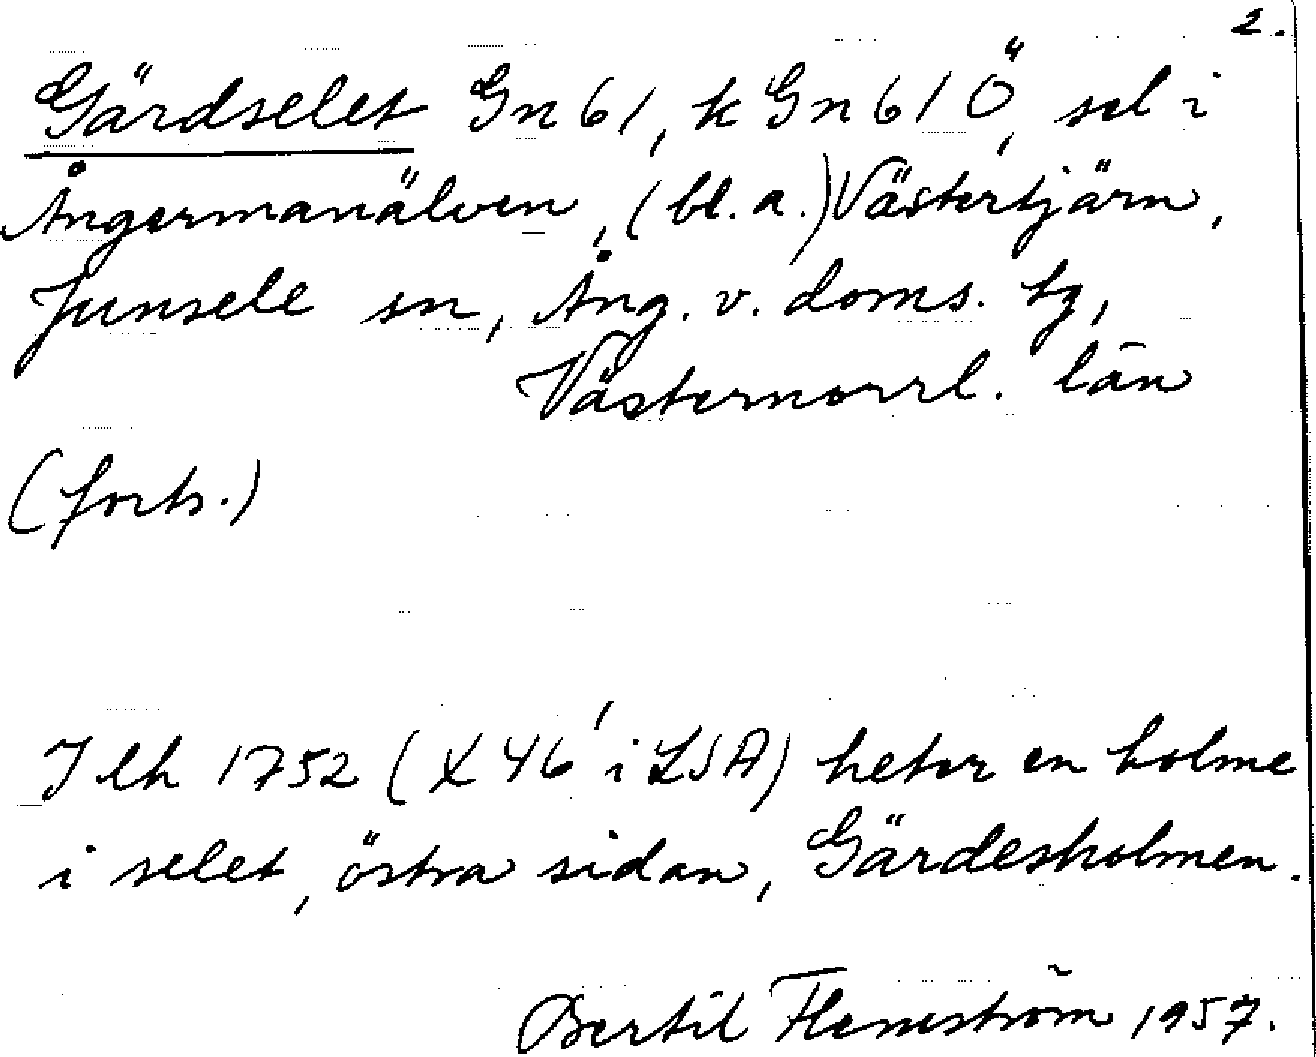 2.
Gärdselet Gn 61, k Gn 61 Ö, sel i
Ångermanälven, (bl.a.) Västertjärn,
Junsele sn, Ång. v. doms. tg,
Västernorrl. län
(forts.)
I lh 1752 (X 46' i LSA) heter en holme
i selet, östra sidan, Gärdesholmen.
Bertil Flemström 1957.